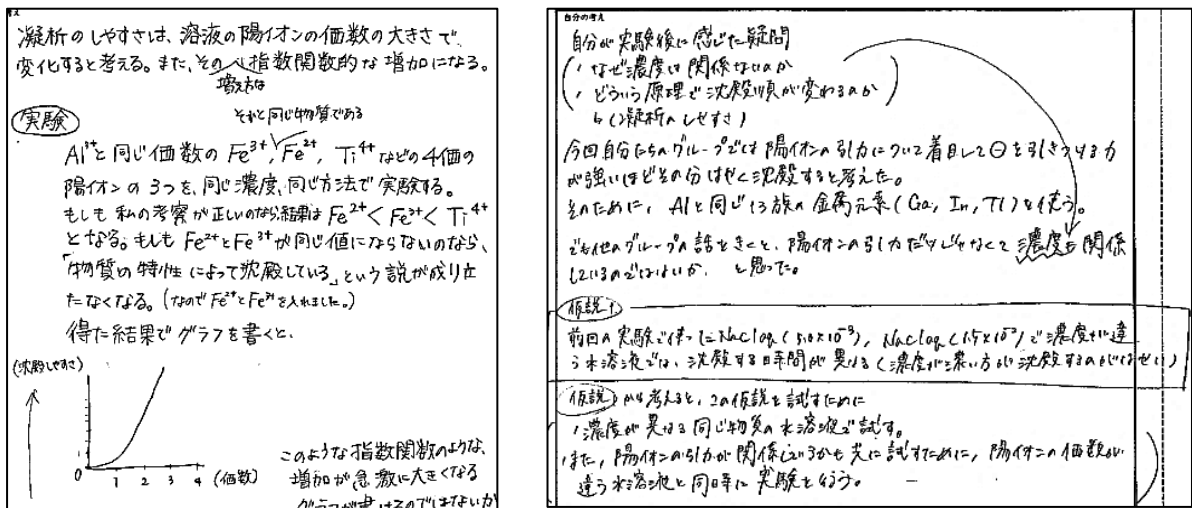 考え
凝析のしやすさは、溶液の陽イオンの価数の大きさで、
変化すると考える。また、その指数関数的な増加になる。
増え方は
実験
それと同じ物質である
Al³⁺と同じ価数の Fe³⁺, Fe²⁺, Ti⁴⁺などの4価の
陽イオンの3つを、同じ濃度、同じ方法で実験する。
もしも私の考察が正しいのなら結果は Fe²⁺ < Fe³⁺ < Ti⁴⁺
となる。もしも Fe²⁺と Fe³⁺が同じ値にならないのなら、
「物質の特性によって沈殿している」という説が成り立
たなくなる。(なので Fe²⁺と Fe³⁺を入れました。)
得た結果でグラフを書くと、
(沈殿しやすさ)
0 1 2 3 4 (価数)
このような指数関数のような、
増加が急激に大きくなる
グラフが書けるのではないか
自分の考え
自分が実験後に感じた疑問
・なぜ濃度は関係ないのか
・どういう原理で沈殿順が変わるのか
↳(凝析のしやすさ)
今回自分たちのグループでは陽イオンの引力について着目して⊖を引きつける力
が強いほどその分はやく沈殿すると考えた。
そのために、Alと同じ13族の金属元素(Ga, In, Tl)を使う。
でも他のグループの話をきくと、陽イオンの引力だけじゃなくて濃度も関係
しているのではないか、と思った。
仮説1
前回の実験で使ったNaClaq(5.0×10⁻³), NaClaq(1.5×10⁻²)で濃度が違
う水溶液では、沈殿する時間が異なる(濃度が濃い方が沈殿するのがはやい)
仮説1から考えると、この仮説を試すために
・濃度が異なる同じ物質の水溶液で試す。
・また、陽イオンの引力が関係しているかも共に試すために、陽イオンの価数が
違う水溶液と同時に実験を行う。